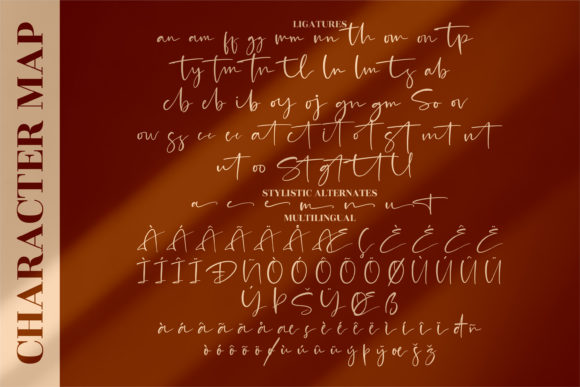 CHARACTER MAP
LIGATURES
an am ff gg mm nn th om on tp
ty tm tn tl ln lm ts ab
cb eb ib oy oj gn gm So ov
ow ss cc ee at ct it ot st mt nt
ut oo St gt tt ll
STYLISTIC ALTERNATES
a c e m n u t
MULTILINGUAL
À Á Â Ã Ä Å Æ Ç È É Ê Ë
Ì Í Î Ï Ð Ñ Ò Ó Ô Õ Ö Ø Ù Ú Û Ü
Ý Þ Š Ÿ Œ ß
à á â ã ä å æ ç è é ê ë ì í î ï đ ñ
ò ó ô õ ö ø ù ú û ü ý þ ÿ œ š ž